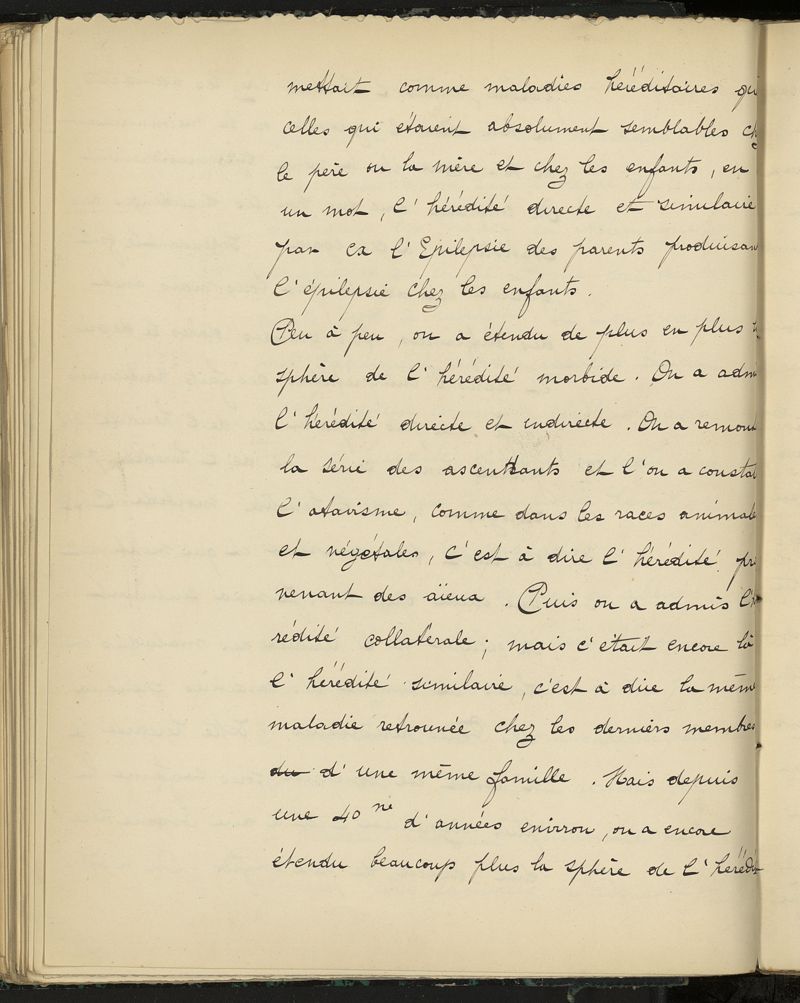 mettait comme maladies héréditaires qu
celles qui étaient absolument semblables ch
le père ou la mère et chez les enfants, en
un mot, l'hérédité directe et similaire
par ex l'Epilepsie des parents produisan
l'épilepsie chez les enfants.
Peu à peu, on a étendu de plus en plus
sphère de l'hérédité morbide. On a adm
l'hérédité directe et indirecte. On a remont
la série des ascendants et l'on a constat
l'atavisme, comme dans les races animale
et végétales, c'est à dire l'hérédité pr
venant des aïeux. Puis on a admis l'h
rédité collatérale; mais c'était encore là
l'hérédité similaire, c'est à dire la mêm
maladie retrouvée chez les derniers membres
du d'une même famille. Mais depuis
une 40ne d'années environ, on a encore
étendu beaucoup plus la sphère de l'hérédi